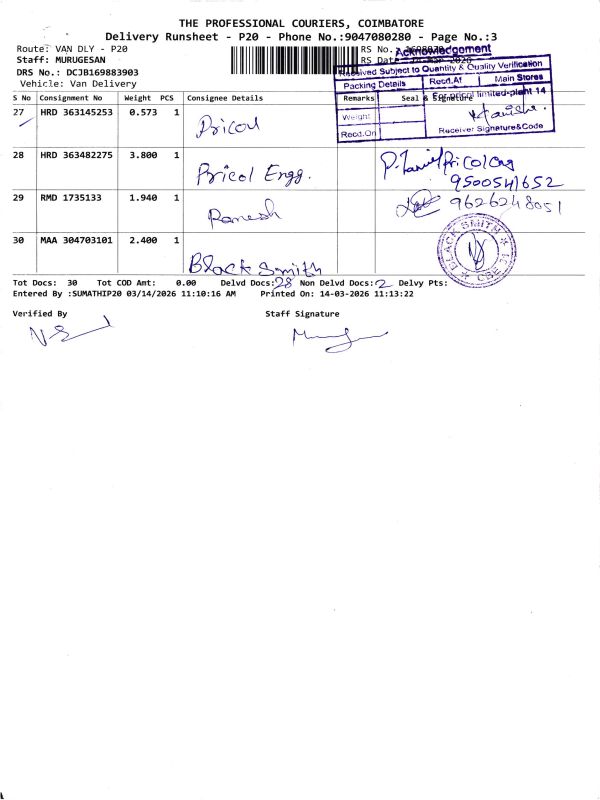 THE PROFESSIONAL COURIERS, COIMBATORE
Delivery Runsheet - P20 - Phone No.:9047080280 - Page No.:3
Route: VAN DLY - P20
RS No.
Acknowledgement
Staff: MURUGESAN
RS Date
DRS No.: DCJB169883903
Received Subject to Quantity & Quality Verification
Vehicle: Van Delivery
Packing Details Recd.At Main Stores
S No Consignment No Weight PCS Consignee Details Remarks Seal & Signature
For pricol limited-plant 14
Weight
Recd.On
Receiver Signature&Code
27 HRD 363145253 0.573 1 Pricol
28 HRD 363482275 3.800 1 Pricol Engg.
9500541652
29 RMD 1735133 1.940 1 Ramesh 9626248051
30 MAA 304703101 2.400 1 Black Smith
BLACK SMITH
CBE
Tot Docs: 30 Tot COD Amt: 0.00 Delvd Docs:28 Non Delvd Docs:2 Delvy Pts:
Entered By :SUMATHIP20 03/14/2026 11:10:16 AM Printed On: 14-03-2026 11:13:22
Verified By Staff Signature